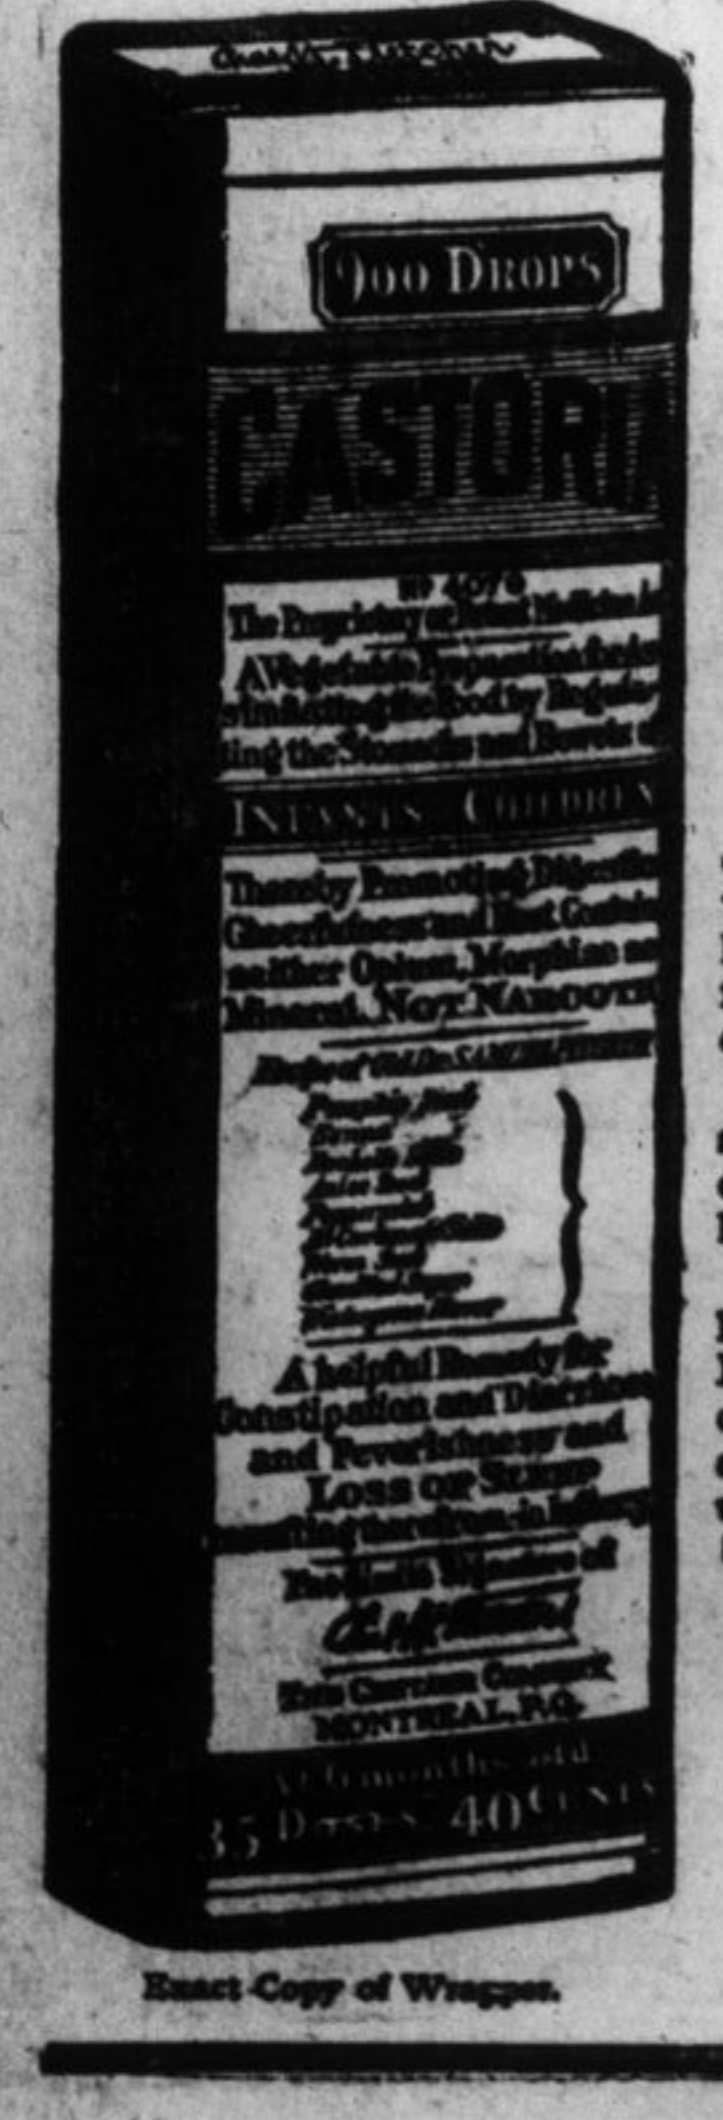 900 DROPS
CASTORIA
The Proprietary or Patent Medicine
A Vegetable Preparation for
similating the Food by Regula
ting the Stomachs and Bowels of
INFANTS CHILDREN
Thereby Promoting Digestion
Cheerfulness and Rest Contains
neither Opium, Morphine nor
Mineral. NOT NARCOTIC
Recipe of Old Dr. SAMUEL PITCHER
Pumpkin Seed
Senna
Rochelle Salts
Anise Seed
Peppermint
Worm Seed
A helpful Remedy for
Constipation and Diarrhoea
and Feverishness and
LOSS OF SLEEP
resulting therefrom in Infancy
Fac-Simile Signature of
THE CENTAUR COMPANY
MONTREAL, P.Q.
At 6 months old
35 DOSES 40 CENTS
Exact Copy of Wrapper.